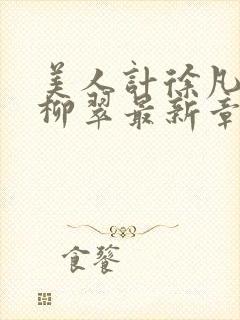 美人計徐凡
柳翠最新章
食饕